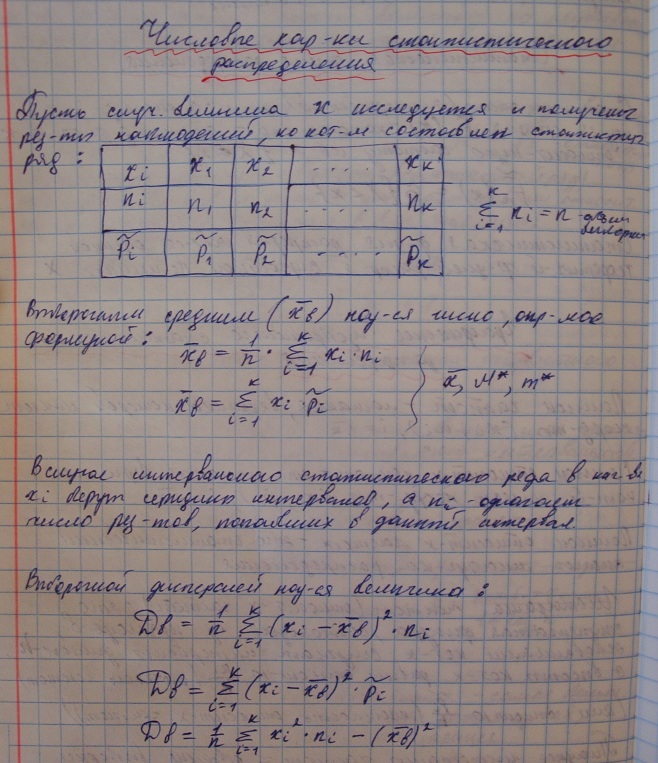 Числовые хар-ки статистического
распределения
Пусть случ. величина X исследуется и получены
рез-ты наблюдений, по кот-м составлен статистич.
ряд:
xi x1 x2 .... xк
ni n1 n2 .... nк
p̃i p̃1 p̃2 .... p̃к
∑ᵢ₌₁ᴷ ni = n - объём
выборки
Выборочным средним (x̄в) наз-ся число, опр-мое
формулой:
x̄в = 1/n · ∑ᵢ₌₁ᴷ xi · ni
x̄в = ∑ᵢ₌₁ᴷ xi · p̃i
x̄, M*, m*
В случае интервального статистического ряда в кач-ве
xi берут середины интервалов, а ni -
число рез-тов, попавших в данный интервал
Выборочной дисперсией наз-ся величина:
Дв = 1/n ∑ᵢ₌₁ᴷ (xi - x̄в)² · ni
Дв = ∑ᵢ₌₁ᴷ (xi - x̄в)² · p̃i
Дв = 1/n ∑ᵢ₌₁ᴷ xi² · ni - (x̄в)²